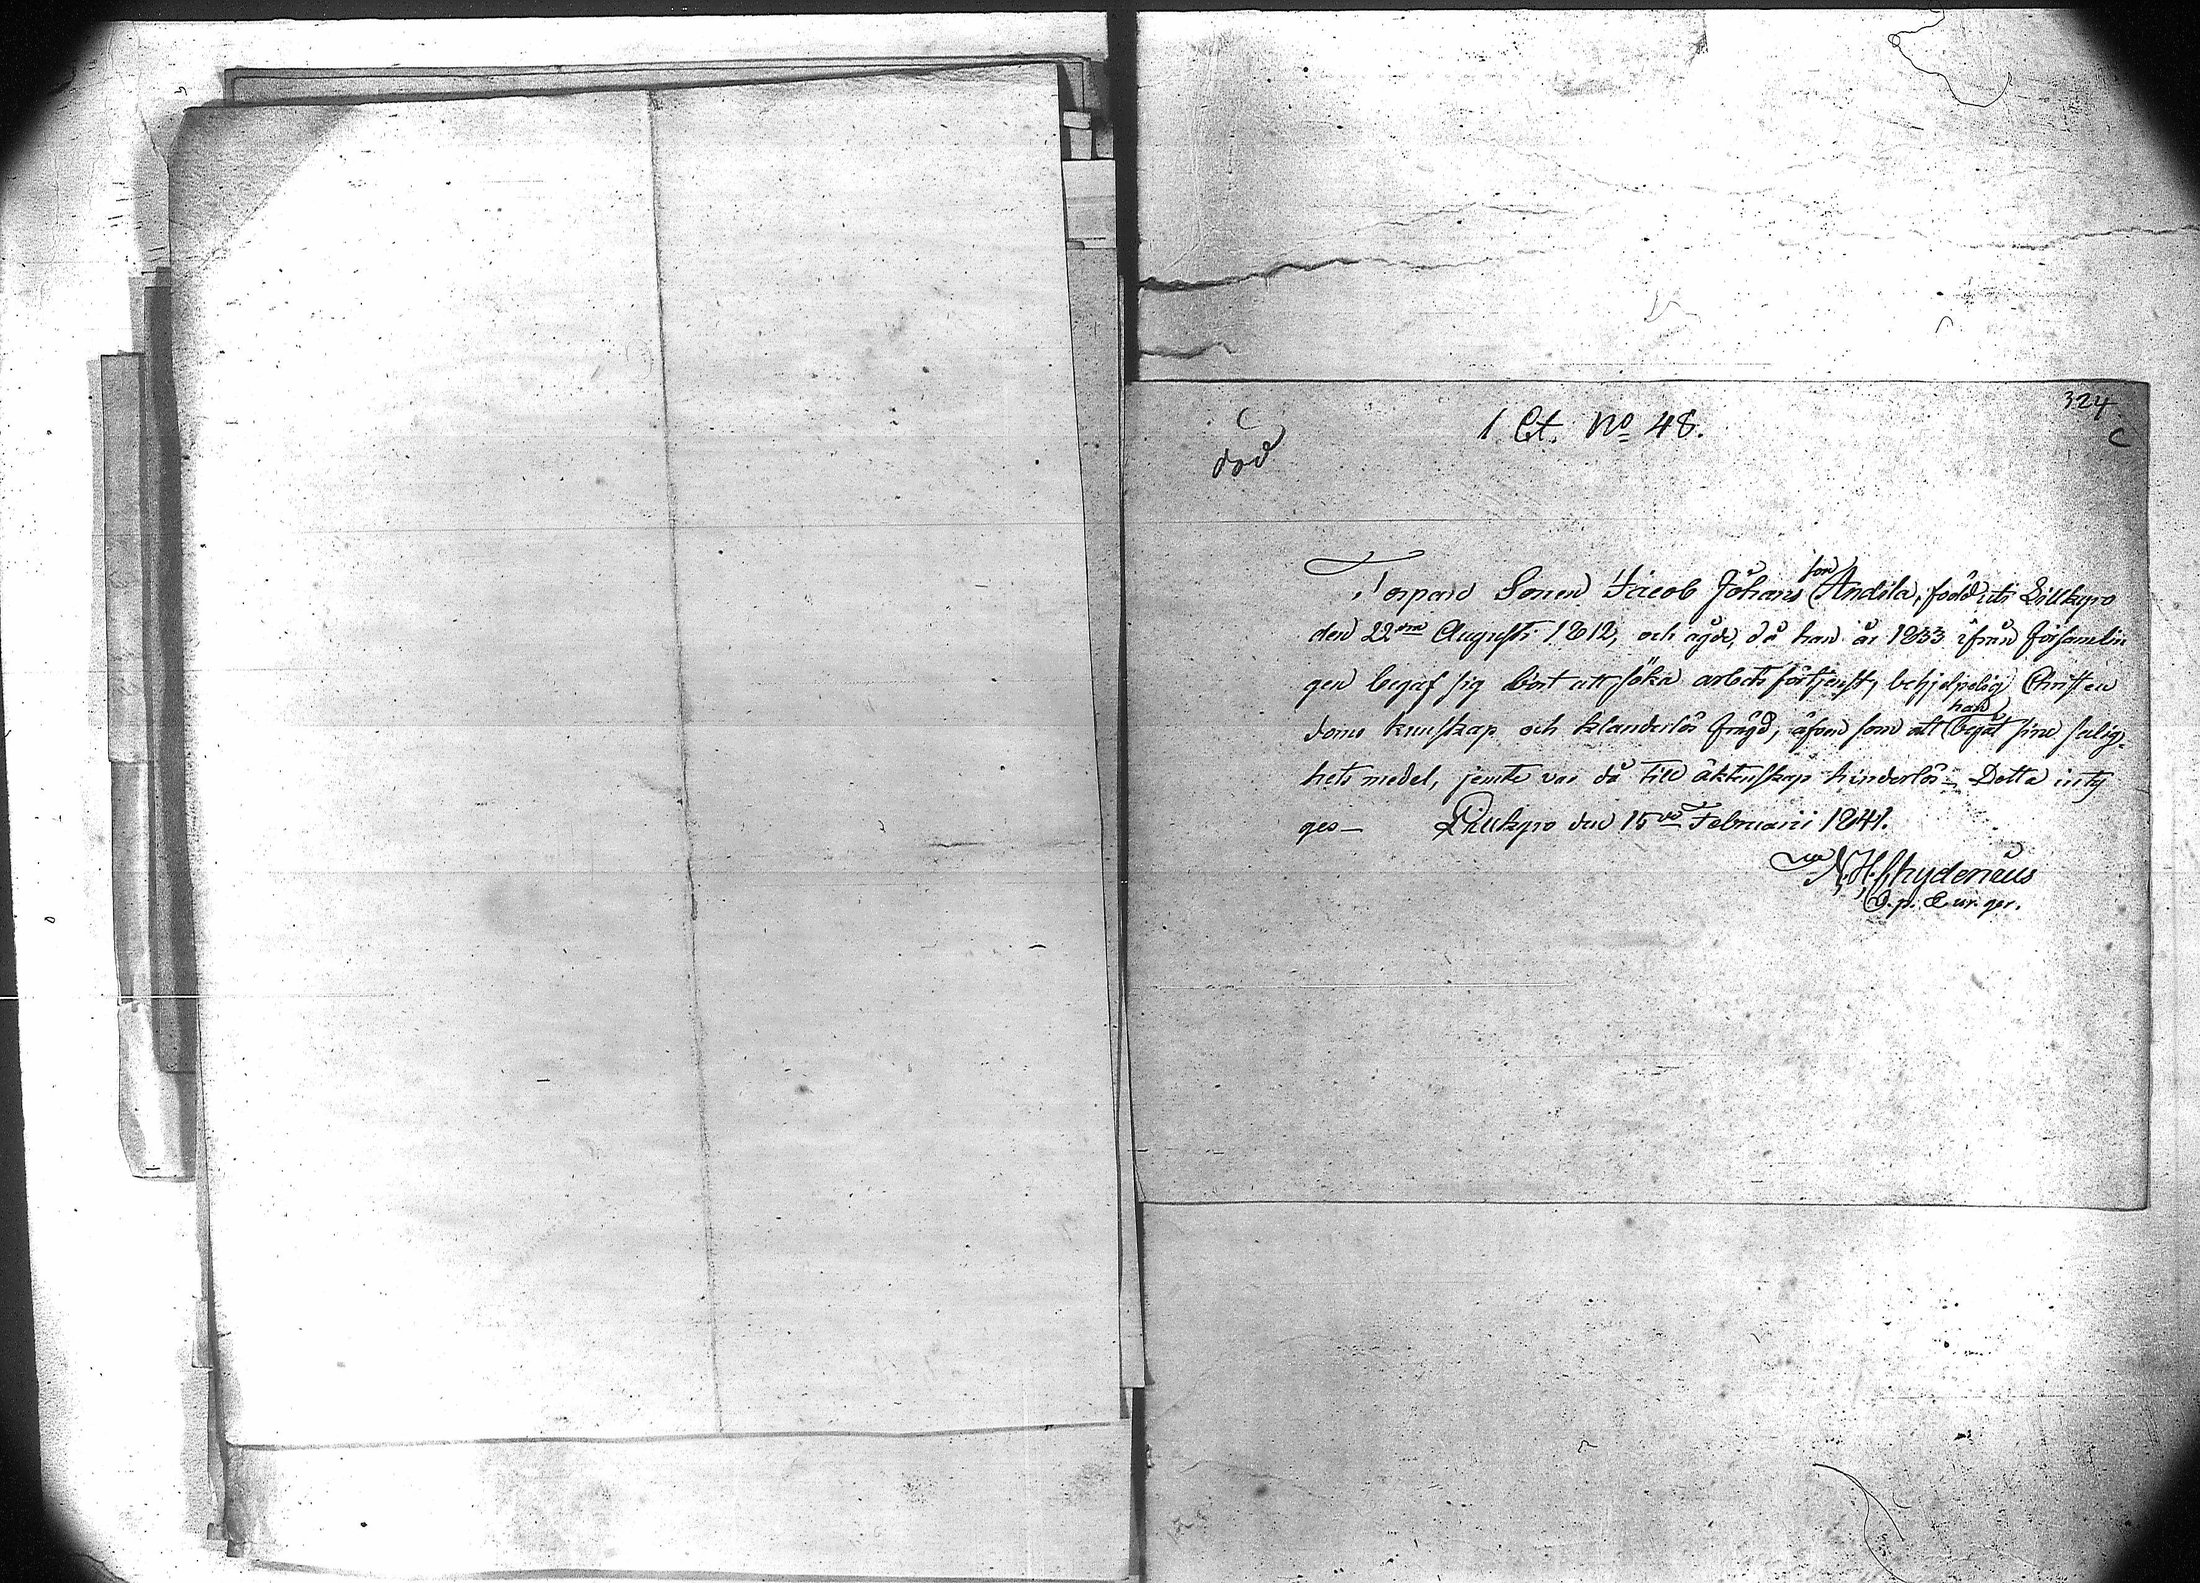 324
C
1 Ct. No 48.
död
Torpare Sonen Jacob Johans son Andila, född uti Lillkyro
den 22dra Augusti 1812, och ägde, då han år 1833 ifrån församlin
gen begaf sig bort att söka arbets förtjenst, behjelpelig Christen
doms kunskap och klanderlös frägd, äfven som att han begåt sine salig-
hets medel, jemte var då till äktenskap hinderlös – Detta inty
ges – Lillkyro den 15de Februarii 1841.
N. H. Chydenius